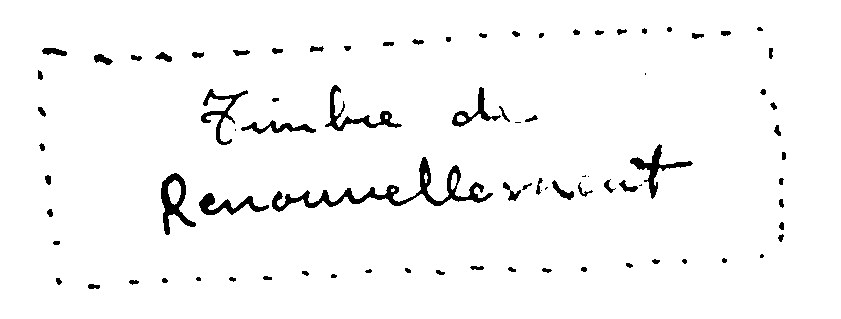 Timbre de
Renouvellement